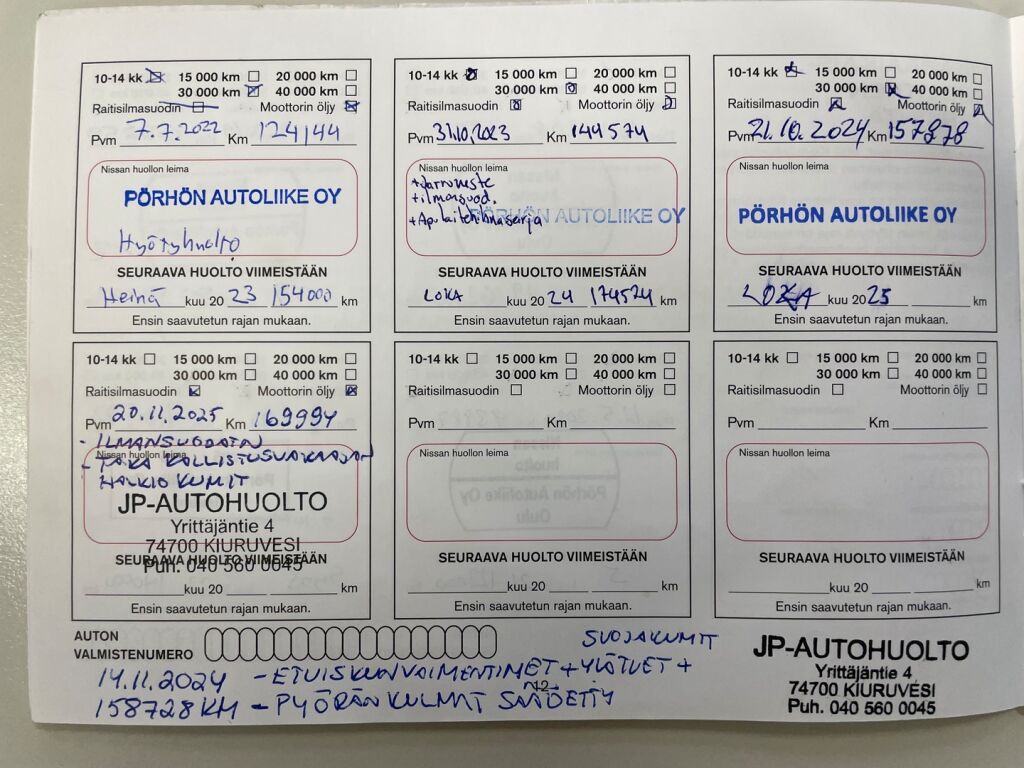 10-14 kk 15 000 km 20 000 km
30 000 km 40 000 km
Raitisilmasuodin Moottorin öljy
Pvm 7.7.2022 Km 124144
Nissan huollon leima
PÖRHÖN AUTOLIIKE OY
Hyötyhuolto
SEURAAVA HUOLTO VIIMEISTÄÄN
Heinä kuu 20 23 154000 km
Ensin saavutetun rajan mukaan.
10-14 kk 15 000 km 20 000 km
30 000 km 40 000 km
Raitisilmasuodin Moottorin öljy
Pvm 31.10.2023 Km 144574
Nissan huollon leima
+Jarruneste
+ilmasuod.
+Apulaitehihnasarja
PÖRHÖN AUTOLIIKE OY
SEURAAVA HUOLTO VIIMEISTÄÄN
LOKA kuu 20 24 174574 km
Ensin saavutetun rajan mukaan.
10-14 kk 15 000 km 20 000 km
30 000 km 40 000 km
Raitisilmasuodin Moottorin öljy
Pvm 21.10.2024 Km 157878
Nissan huollon leima
PÖRHÖN AUTOLIIKE OY
SEURAAVA HUOLTO VIIMEISTÄÄN
LOKA kuu 20 25 km
Ensin saavutetun rajan mukaan.
10-14 kk 15 000 km 20 000 km
30 000 km 40 000 km
Raitisilmasuodin Moottorin öljy
Pvm 20.11.2025 Km 169994
- ILMANSUODATIN
Nissan huollon leima
- TAKA KALLISTUSVAKAAJAN
HALKIO KUMIT
JP-AUTOHUOLTO
Yrittäjäntie 4
74700 KIURUVESI
SEURAAVA HUOLTO VIIMEISTÄÄN
Puh. 040 560 0045
kuu 20 km
Ensin saavutetun rajan mukaan.
10-14 kk 15 000 km 20 000 km
30 000 km 40 000 km
Raitisilmasuodin Moottorin öljy
Pvm Km
Nissan huollon leima
SEURAAVA HUOLTO VIIMEISTÄÄN
kuu 20 km
Ensin saavutetun rajan mukaan.
10-14 kk 15 000 km 20 000 km
30 000 km 40 000 km
Raitisilmasuodin Moottorin öljy
Pvm Km
Nissan huollon leima
SEURAAVA HUOLTO VIIMEISTÄÄN
kuu 20 km
Ensin saavutetun rajan mukaan.
AUTON
VALMISTENUMERO
SUOJAKUMIT
14.11.2024 - ETUISKUNVAIMENTIMET + YLÄTUET +
12
158728 KM - PYÖRÄN KULMAT SÄÄDETTY
JP-AUTOHUOLTO
Yrittäjäntie 4
74700 KIURUVESI
Puh. 040 560 0045